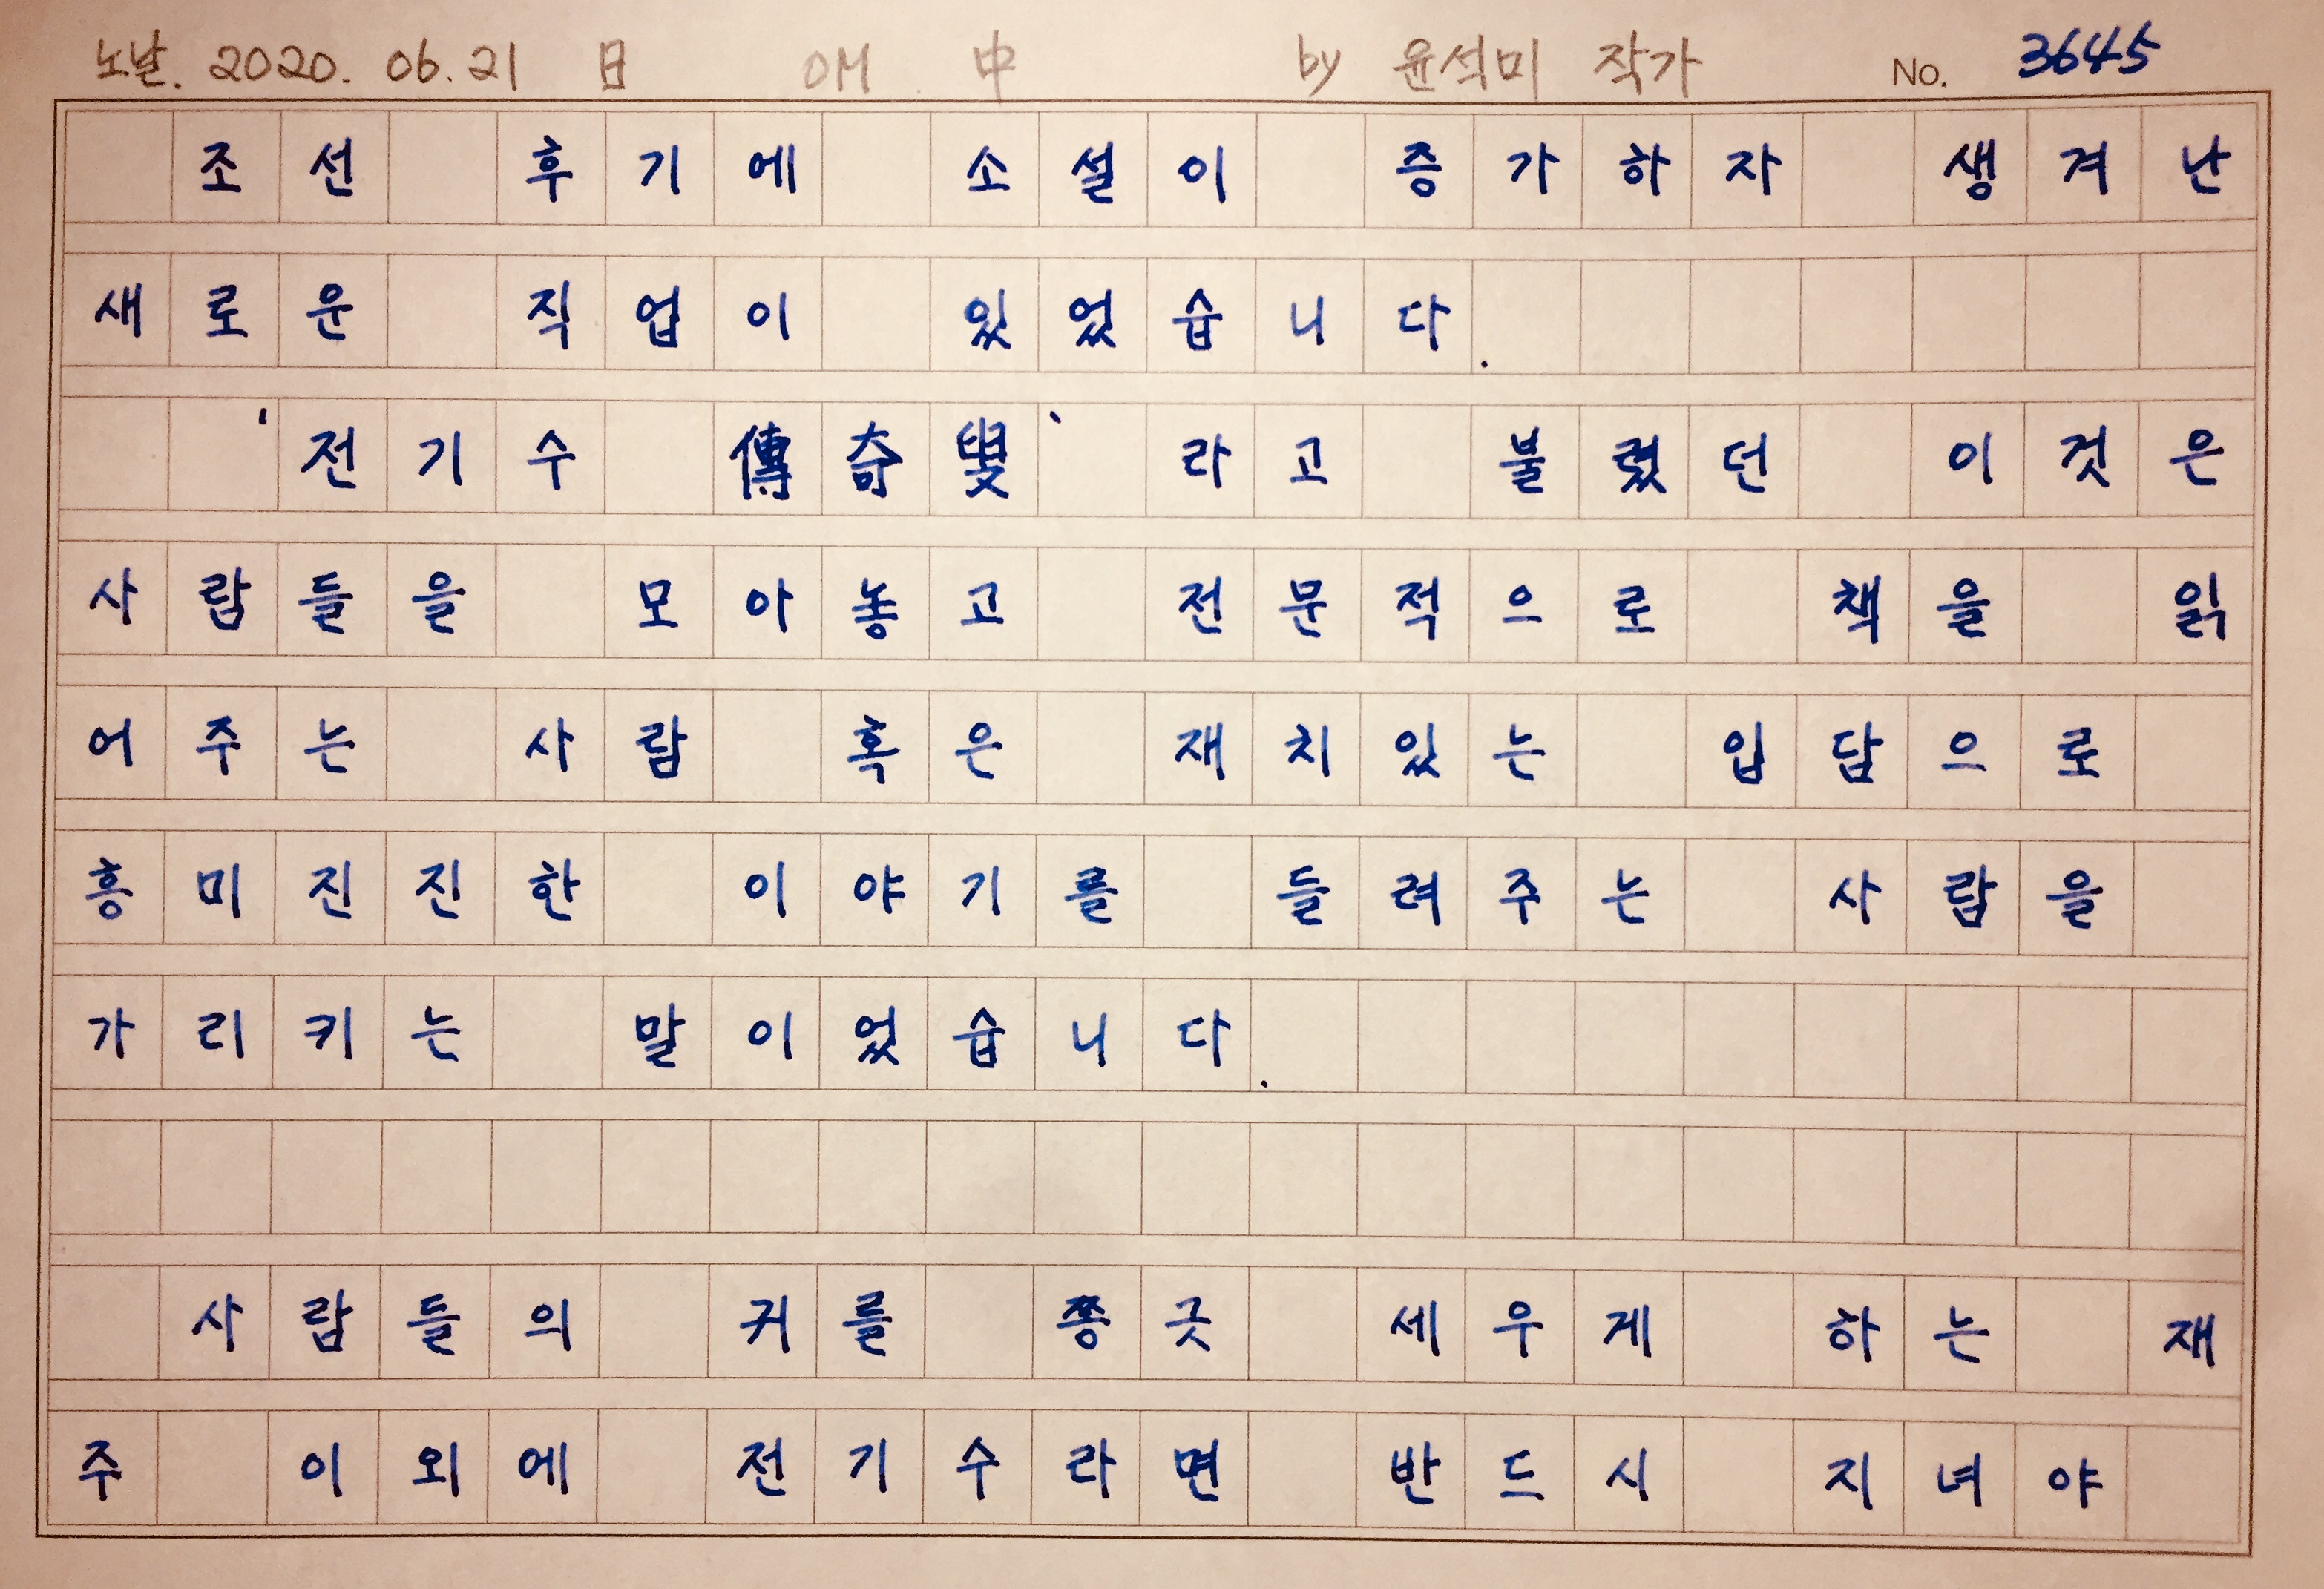 노날. 2020. 06. 21 日 OM 中 by 윤석미 작가 No. 3645
조선 후기에 소설이 증가하자 생겨난
새로운 직업이 있었습니다.
'전기수 傳奇叟' 라고 불렸던 이것은
사람들을 모아놓고 전문적으로 책을 읽
어주는 사람 혹은 재치있는 입담으로
흥미진진한 이야기를 들려주는 사람을
가리키는 말이었습니다.
사람들의 귀를 쫑긋 세우게 하는 재
주 이외에 전기수라면 반드시 지녀야